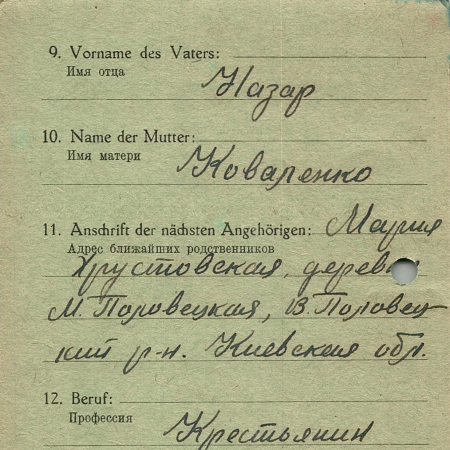 9. Vorname des Vaters:
Имя отца
Назар
10. Name der Mutter:
Имя матери
Коваленко
11. Anschrift der nächsten Angehörigen: Мария
Адрес ближайших родственников
Хрустовская, дерев
М. Половецкая, В. Половец-
кий р-н. Киевская обл.
12. Beruf:
Профессия
Крестьянин